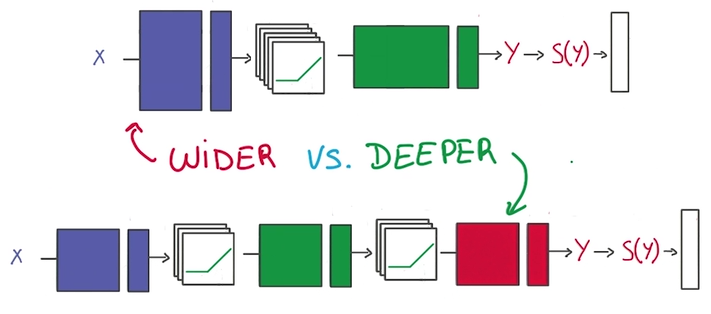 X Y S(Y)
WiDER VS. DEEPER
X Y S(Y)